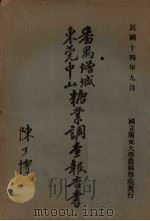 民國十四年九月
番禺增城
東莞中山
糖業調查報告書
國立廣東大學農科學院印行